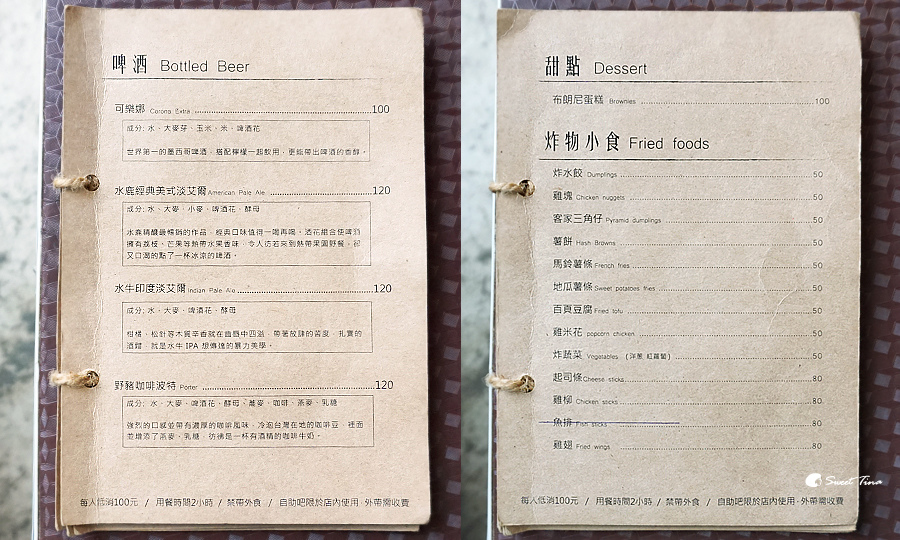 啤酒 Bottled Beer
可樂娜 Corona Extra 100
成分: 水、大麥芽、玉米、米、啤酒花
世界第一的墨西哥啤酒，搭配檸檬一起飲用，更能帶出啤酒的香醇。
水鹿經典美式淡艾爾 American Pale Ale 120
成分: 水、大麥、小麥、啤酒花、酵母
水鹿精釀最暢銷的作品，經典口味值得一喝再喝。酒花組合使啤酒
擁有荔枝、芒果等熱帶水果香味，令人彷若來到熱帶果園野餐，卻
又口渴的點了一杯冰涼的啤酒。
水牛印度淡艾爾 Indian Pale Ale 120
成分: 水、大麥、啤酒花、酵母
柑橘、松針等木質辛香就在齒唇中四溢，帶著放肆的苦度，扎實的
酒體，就是水牛 IPA 想傳達的暴力美學。
野豬咖啡波特 Porter 120
成分: 水、大麥、啤酒花、酵母、蕎麥、咖啡、燕麥、乳糖
強烈的口感並帶有濃厚的咖啡風味，冷泡台灣在地的咖啡豆，裡面
並增添了燕麥、乳糖，彷彿是一杯有酒精的咖啡牛奶。
每人低消100元 / 用餐時間2小時 / 禁帶外食 / 自助吧限於店內使用，外帶需收費
甜點 Dessert
布朗尼蛋糕 Brownies 100
炸物小食 Fried foods
炸水餃 Dumplings 50
雞塊 Chicken nuggets 50
客家三角仔 Pyramid dumplings 50
薯餅 Hash Browns 50
馬鈴薯條 French fries 50
地瓜薯條 Sweet potatoes fries 50
百頁豆腐 Fried tofu 50
雞米花 popcorn chicken 50
炸蔬菜 Vegetables (洋蔥 紅蘿蔔) 50
起司條 Cheese sticks 80
雞柳 Chicken sticks 80
魚排 Fish sticks 80
雞翅 Fried wings 80
每人低消100元 / 用餐時間2小時 / 禁帶外食 / 自助吧限於店內使用，外帶需收費
Sweet Tina